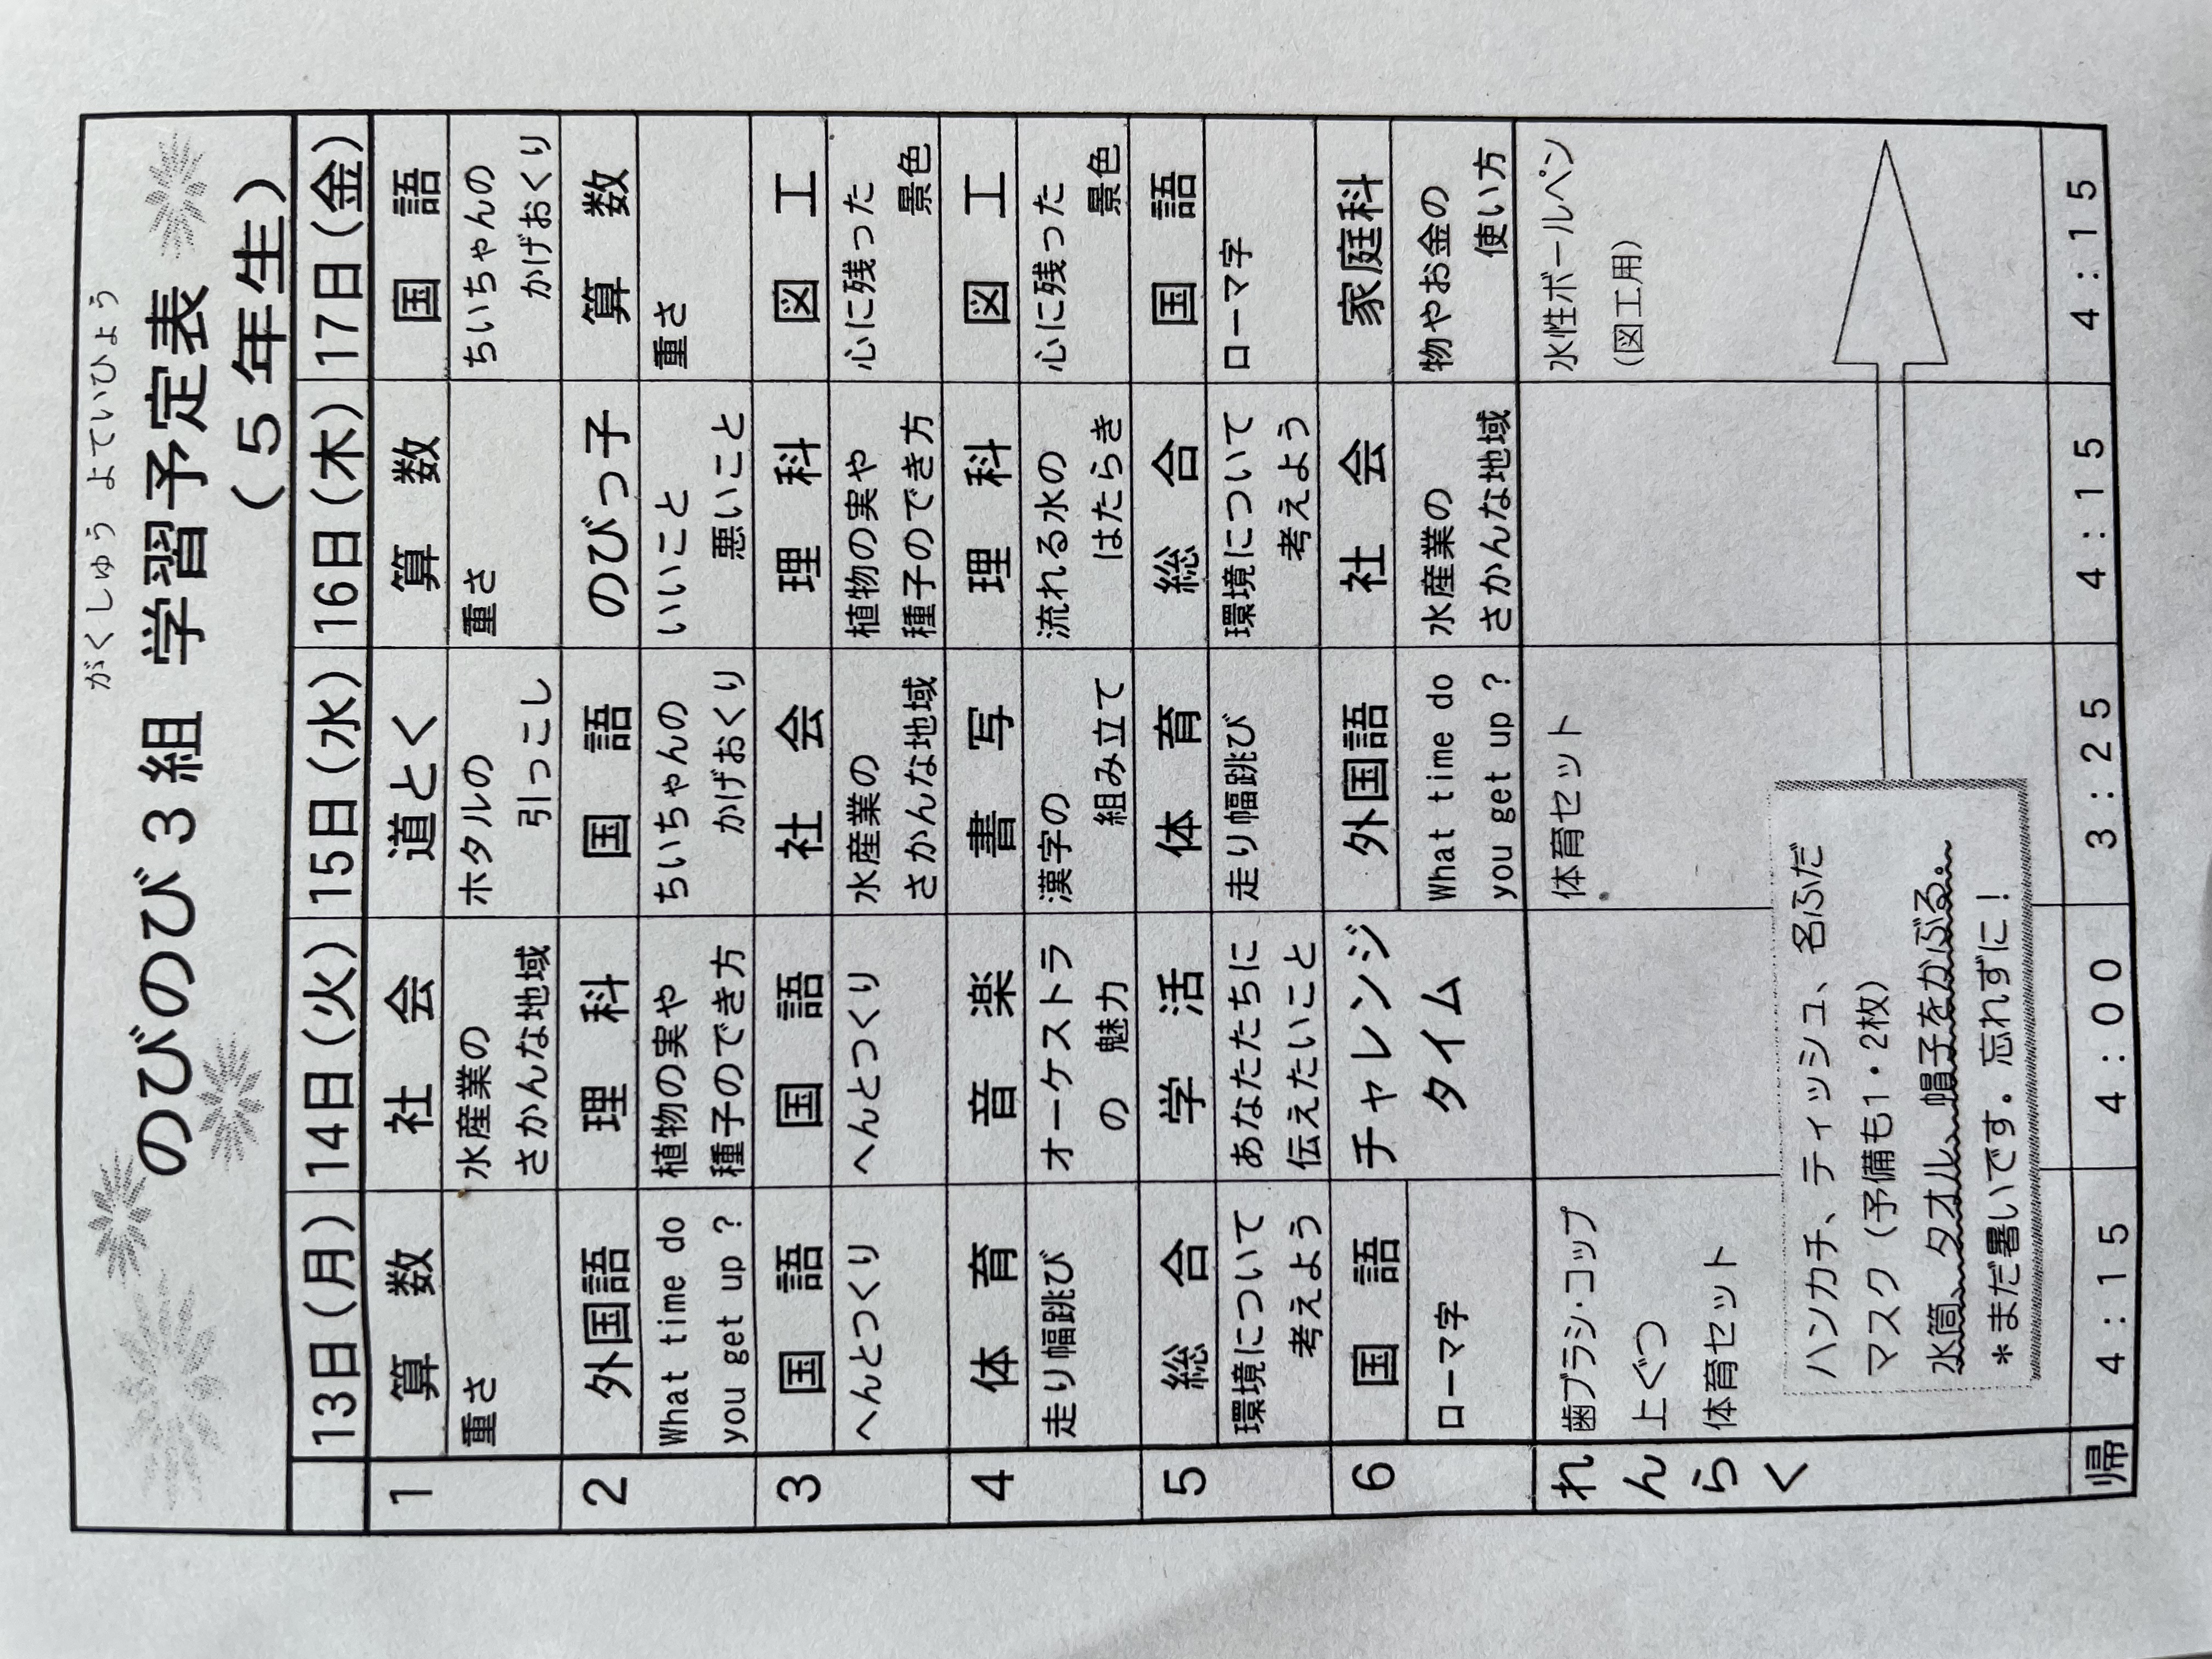 がくしゅう よていひょう
のびのび3組 学習予定表
(5年生)
13日(月) 14日(火) 15日(水) 16日(木) 17日(金)
1 算数 社会 道とく 算数 国語
重さ 水産業の ホタルの 重さ ちいちゃんの
さかんな地域 引っこし かげおくり
2 外国語 理科 国語 のびっ子 算数
What time do 植物の実や ちいちゃんの いいこと 重さ
you get up ? 種子のでき方 かげおくり 悪いこと
3 国語 国語 社会 理科 図工
へんとつくり へんとつくり 水産業の 植物の実や 心に残った
さかんな地域 種子のでき方 景色
4 体育 音楽 書写 理科 図工
走り幅跳び オーケストラ 漢字の 流れる水の 心に残った
の魅力 組み立て はたらき 景色
5 総合 学活 体育 総合 国語
環境について あなたたちに 走り幅跳び 環境について ローマ字
考えよう 伝えたいこと 考えよう
6 国語 チャレンジ 外国語 社会 家庭科
ローマ字 タイム What time do 水産業の 物やお金の
you get up ? さかんな地域 使い方
れんらく 歯ブラシ・コップ 体育セット 水性ボールペン
上ぐつ (図工用)
体育セット
ハンカチ、ティッシュ、名ふだ
マスク(予備も1・2枚)
水筒、タオル、帽子をかぶる。
*まだ暑いです。忘れずに!
帰 4:15 4:00 3:25 4:15 4:15